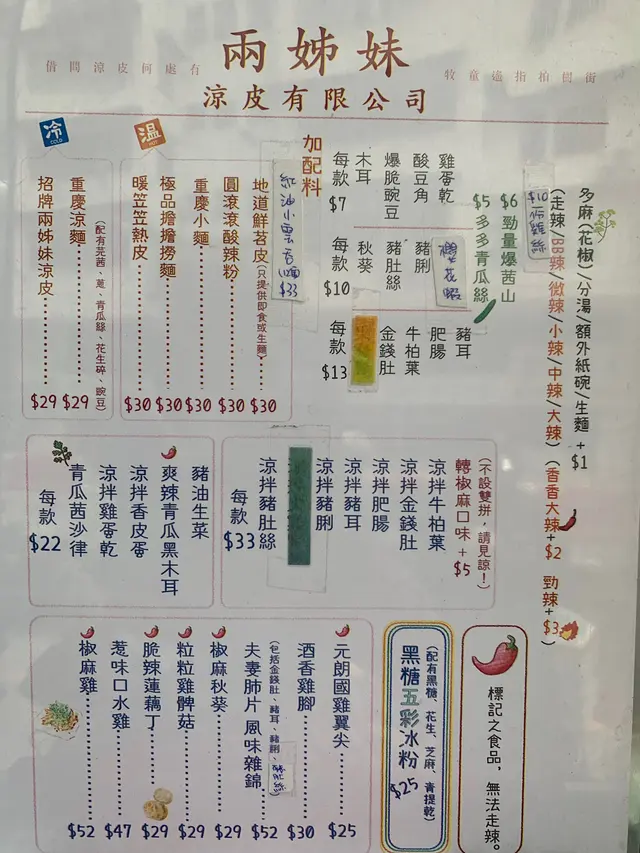 兩姊妹
借問涼皮何處有
牧童遙指柏樹街
涼皮有限公司
冷
COLD
招牌兩姊妹涼皮 $29
重慶涼麵 $29
(配有芫茜、蔥、青瓜絲、花生碎、豌豆)
溫
暖笠笠熱皮 $30
極品擔擔撈麵 $30
重慶小麵 $30
圓滾滾酸辣粉 $30
地道鮮苕皮(只提供即食或生麵) $30
$33
加配料
每款 $7
木耳
爆脆豌豆
酸豆角
雞蛋乾
每款 $10
秋葵
豬肚絲
豬脷
櫻花蝦
每款 $13
金錢肚
牛柏葉
肥腸
豬耳
$5 多多青瓜絲
$6 勁量爆茜山
$10一份雞絲
多麻(花椒)/分湯/額外紙碗/生麵 + $1
(走辣/BB辣/微辣/小辣/中辣/大辣)
(香香大辣+$2 勁辣+$3)
每款 $22
青瓜茜沙律
涼拌雞蛋乾
涼拌香皮蛋
爽辣青瓜黑木耳
豬油生菜
每款 $33
涼拌豬肚絲
涼拌豬脷
涼拌豬耳
涼拌肥腸
涼拌金錢肚
涼拌牛柏葉
轉椒麻口味 + $5
(不設雙拼,請見諒!)
椒麻雞 $52
惹味口水雞 $47
脆辣蓮藕丁 $29
粒粒雞髀菇 $29
椒麻秋葵 $29
夫妻肺片 風味雜錦 $52
(包括金錢肚、豬耳、豬脷、豬肚絲)
酒香雞腳 $30
元朗國雞翼尖 $25
黑糖五彩冰粉 $25
(配有黑糖、花生、芝麻、青提乾)
標記之食品,無法走辣。